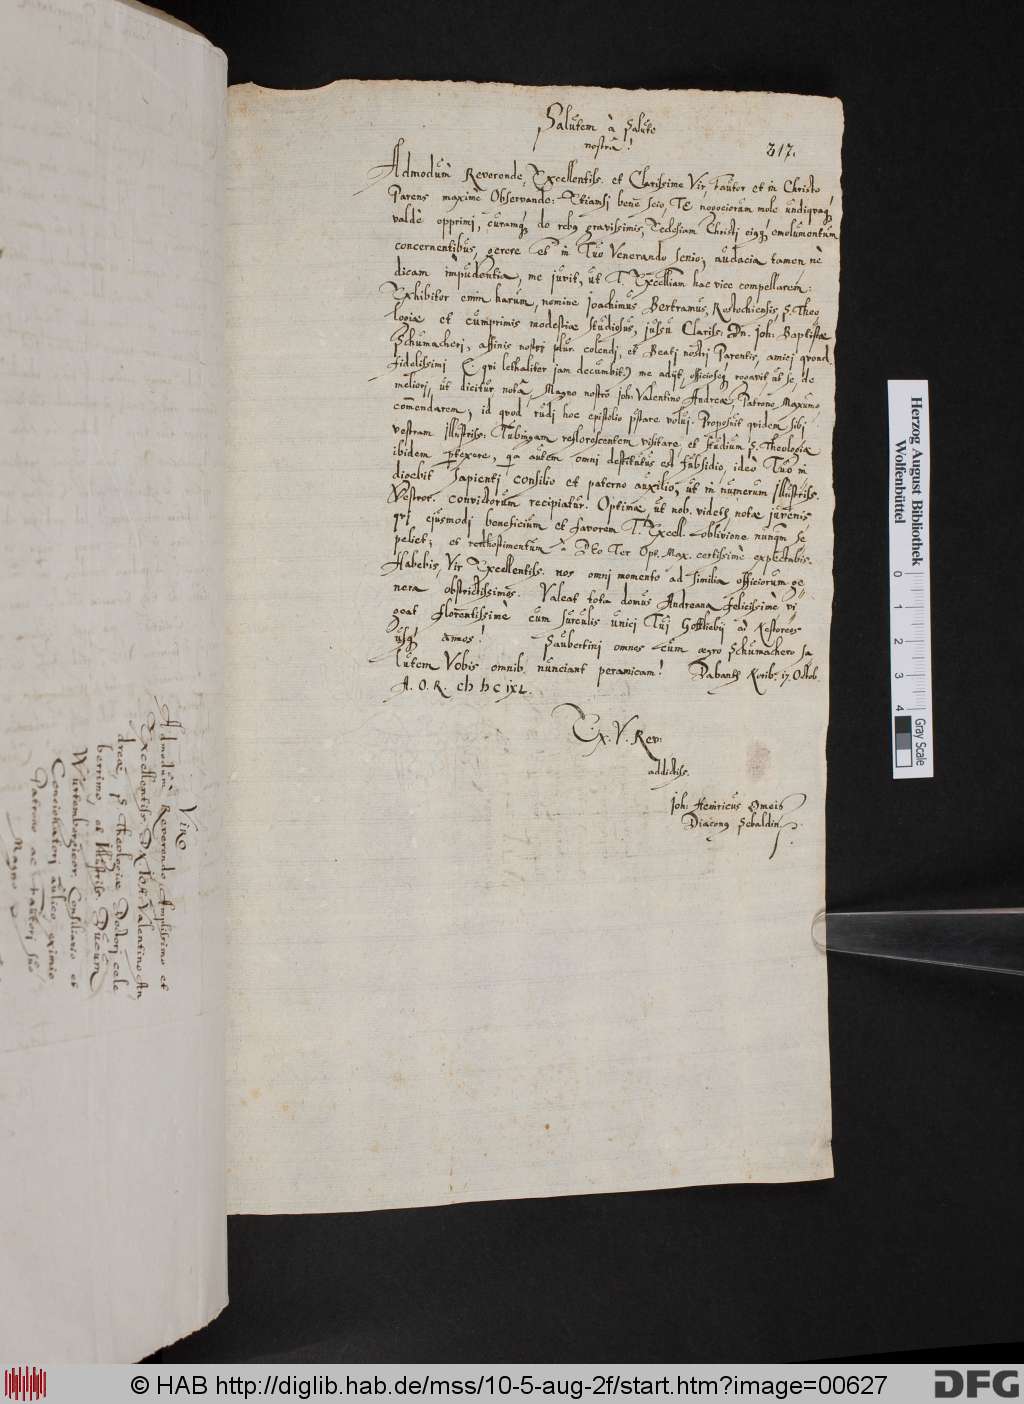 Salutem à Salute
nostrâ!
317.
Admodùm Reverende, Excellentiss. et Clarissime Vir, Fautor et in Christo
Parens maximè Observande: Etiamsi benè scio, Te negociorum mole undiquaq́;
valdè opprimi, curamq́; de rebus gravissimis, Ecclesiam Christi eiusq́; emolumentum
concernentibus, gerere et in Tuo Venerando senio; audacia tamen nè
dicam impudentia, me juvit, ut T. Excelliam hac vice compellarem.
Exhibitor enim harum, nomine Joachimus Bertramus, Rostochiensis, S. Theo
logiae et cumprimis modestiae studiosus, jussu Clariss. Dn. Joh. Baptistae
Schumacheri, affinis nostri plur. colendi, et Beati nostri Parentis, amici quond.
fidelissimi (qui lethaliter jam decumbit) me adijt, officioseq́ rogavit ut se, de
meliori, ut dicitur notâ, Magno nostro Joh. Valentino Andreae, Patrono Maximo
com̄endarem; id quod rudi hoc epistolio p̄stare volui. Proposuit quidem sibi
vestram Illustriss. Tubingam reflorescentem visitare et studium S. Theologiae
ibidem p̄texere, quia autem omni destitutus est subsidio, ideò Tuo in
digebit sapienti consilio et paterno auxilio, ut in numerum Illustriss.
Vestror. convictorum recipiatur. Optimae, ut nob. videtur, notae juvenis,
qui ejusmodi beneficium et favorem T. Excell. oblivione nunqm̄ se
peliet; et redhostimentum à DEo Ter Opt. Max. certissimè expectabis.
Habebis, Vir Excellentiss. nos omni momento ad similia officiorum ge=
nera obstrictissimos. Valeat tota domus Andreana felicissimè vi
geat florentissimè cum surculis unici Tui Gottliebij ad Nestoreos
usq́; annos! Saubertini omnes cum aegro Schumachero sa
lutem Vobis omnib. nunciant peramicam! Dabantur Norib. 17. Octob.
A. O. R. CIƆ IƆC IXL.
T. Ex. V. Rev:
addictiss.
Joh. Heinricus Omeis
Diaconus Sebaldin.
Viro
Admodùm Reverendo, Amplissimo et
Excellentiss. Dn. Joh. Valentino An
dreae, S. Theologiae Doctori cele
berrimo, et Illustriss. Ducum
Würtembergicor. Consiliario et
Concionatori aulico eximio
Patrono ac Fautori suo
Magno
Herzog August Bibliothek
Wolfenbüttel
0 1 2 3 4
Gray Scale
© HAB http://diglib.hab.de/mss/10-5-aug-2f/start.htm?image=00627
DFG